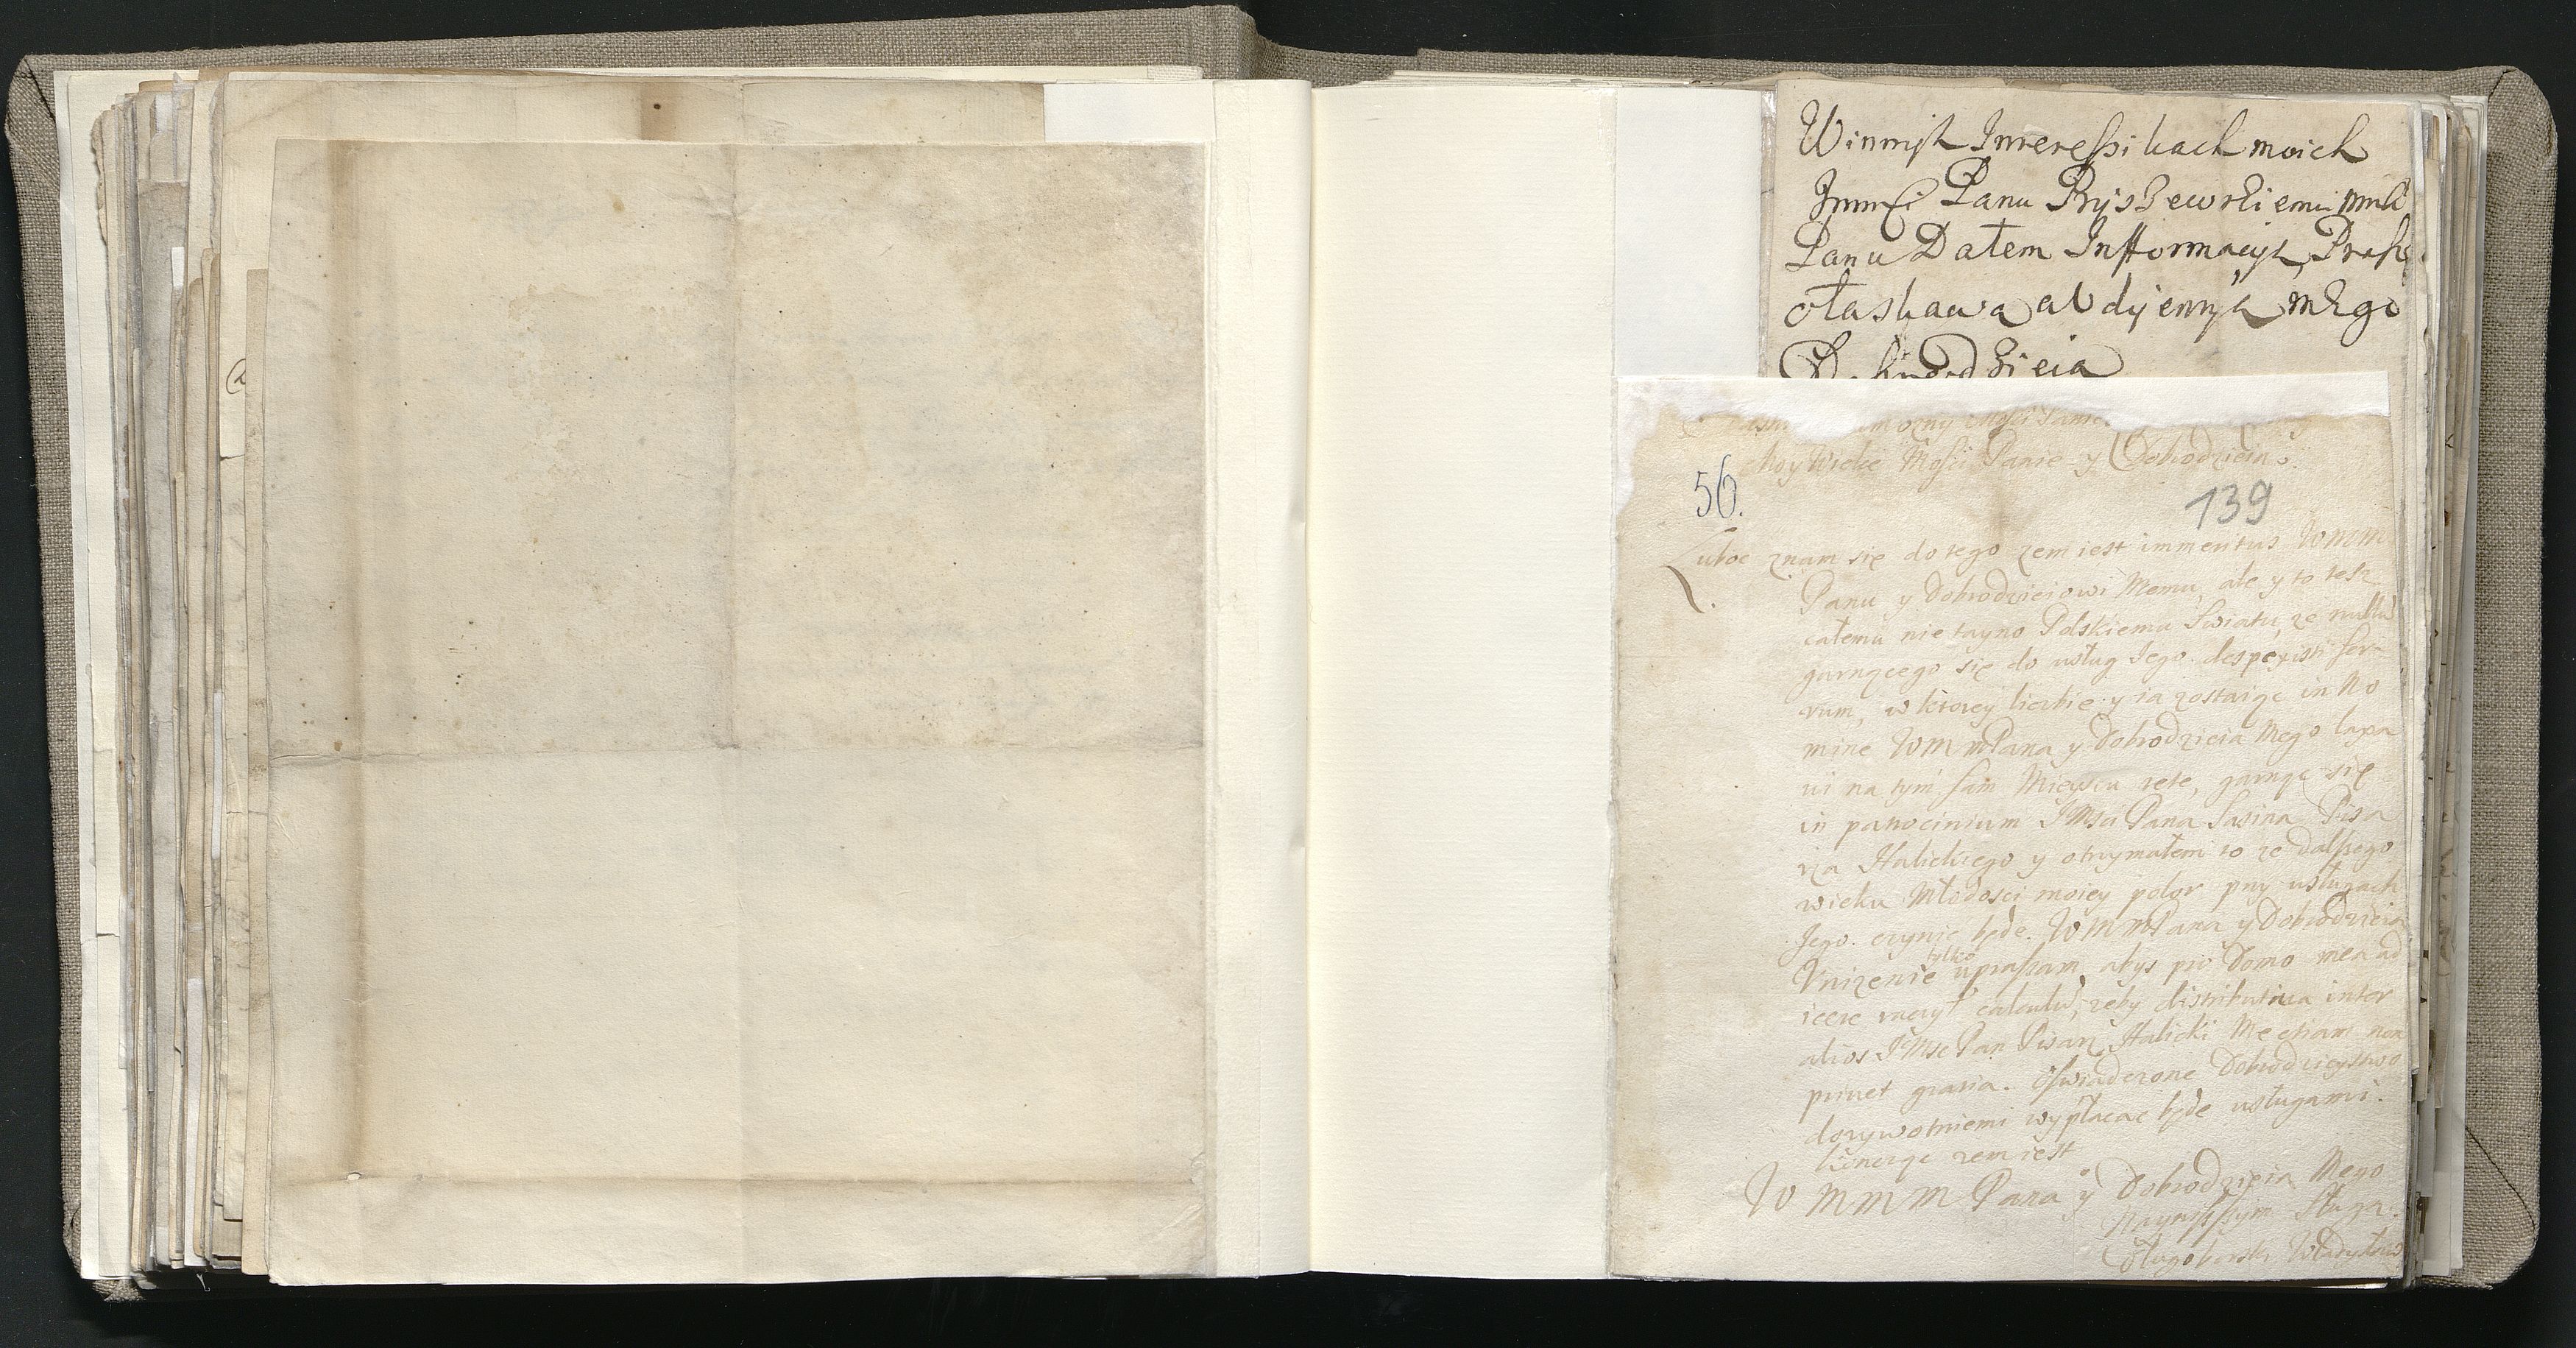 Winnych Interessikach moich
Panu Dałem Infformacyh Prosze
ołaskawa
Dobrodzieia
Moy Wielce Mości Panie y Dobrodzieiu.
56.
139
Luboc znam się do tego zem iest immeritus WMM
Panu y Dobrodzieiowi Memu, ale y to tesz
całemu nie tayno Polskiemu Swiatu, ze nullū
garnącego się do usług Jego despexisti ser-
vum, w ktorey liczbie y ia zostaiąc in No
mine WMMPana y Dobrodzieia Mego laxa
vi na tym sam Mieyscu rete, garnąc się
in patrocinium JMsci Pana Lasina Pisa
rza Halickiego y otrzymałem to ze dalszego
wieku Młodosci moiey polor przy usługach
Jego czynic będe. WMMPana y Dobrodzieia
Unizenie tylko upraszam, abys pro Domo mea ad
icere raczył calculū, zeby distributiva inter
alios JMsc Pan Pisarz Halicki Me etiam non
privet gratia. Oswiadczone Dobrodzieystwo
dozywotniemi wypłacac będe usługami.
Kończąc zem iest
W M M M Pana y Dobrodzieia Mego
Nayniszszym Sługą.
Długoborski Władysław